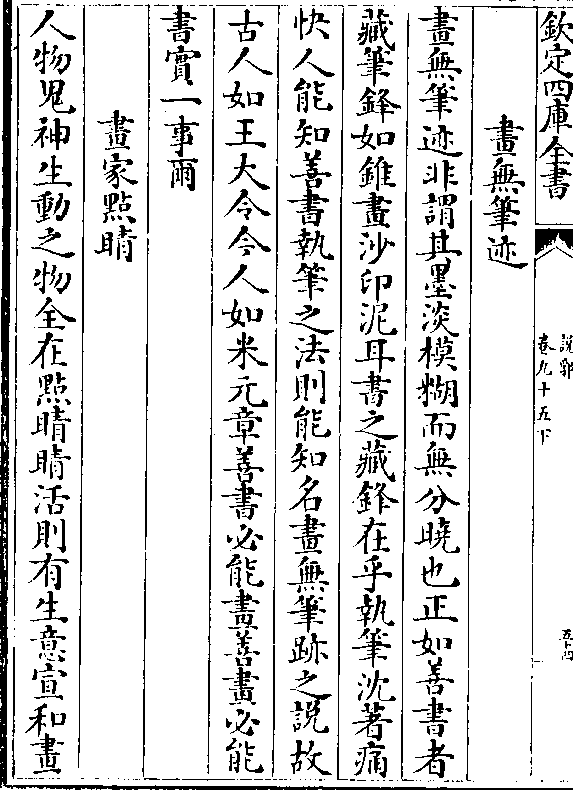 欽定四庫全書
說郛
卷九十五下
五十四
畫無筆迹
畫無筆迹非謂其墨淡模糊而無分曉也正如善書者
藏筆鋒如錐畫沙印泥耳書之藏鋒在乎執筆沈著痛
快人能知善書執筆之法則能知名畫無筆跡之說故
古人如王大令今人如米元章善書必能畫善畫必能
書實一事爾
畫家點睛
人物鬼神生動之物全在點睛睛活則有生意宣和畫